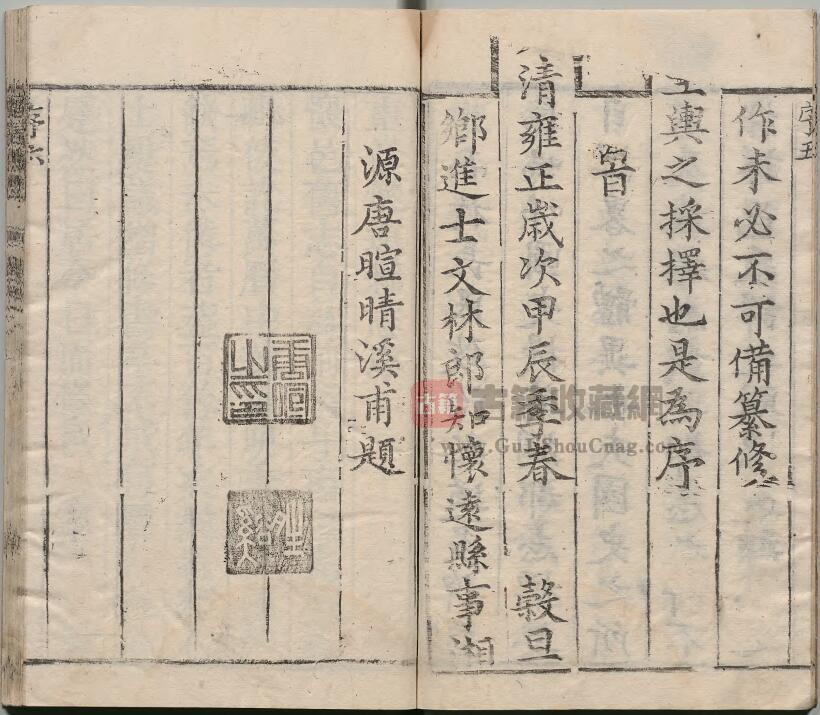 序五
作未必不可備纂修
王輿之採擇也是為序
旹
大清雍正歲次甲辰季春 穀旦
鄉進士文林郎知懷遠縣事湘
源唐暄晴溪甫題
序六
古籍
古籍收藏網